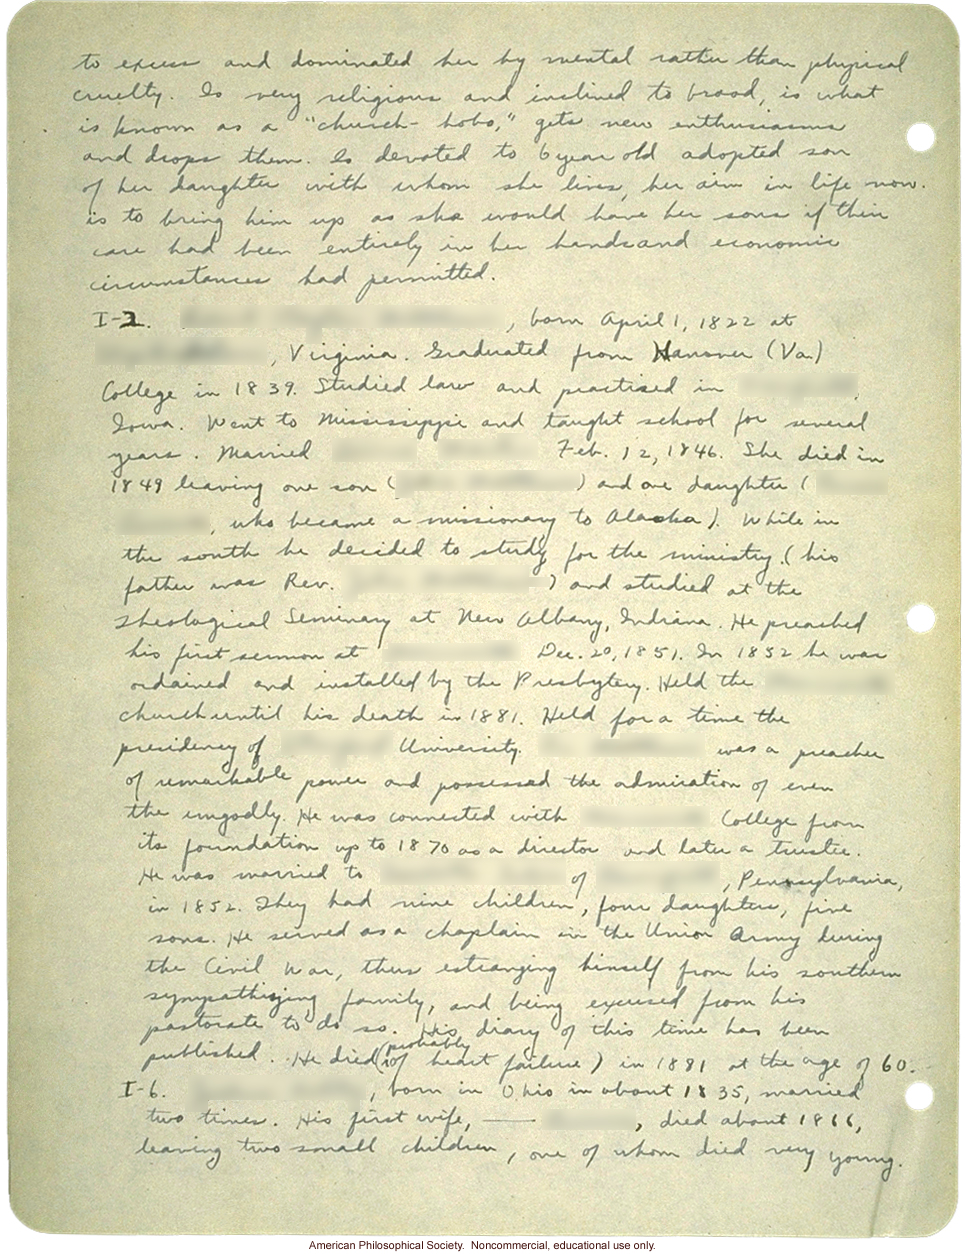 to excess and dominated her by mental rather than physical
cruelty. Is very religious and inclined to brood, is what
is known as a "church-hobo," gets new enthusiasms
and drops them. Is devoted to 6 year old adopted son
of her daughter with whom she lives, her aim in life now
is to bring him up as she would have her sons if their
care had been entirely in her hands and economic
circumstances had permitted.
I-2. , born April 1, 1822 at
, Virginia. Graduated from Hanover (Va.)
College in 1839. Studied law and practised in
Iowa. Went to Mississippi and taught school for several
years. Married Feb. 12, 1846. She died in
1849 leaving one son ( ) and one daughter (
, who became a missionary to Alaska). While in
the south he decided to study for the ministry (his
father was Rev. ) and studied at the
Theological Seminary at New Albany, Indiana. He preached
his first sermon at Dec. 20, 1851. In 1852 he was
ordained and installed by the Presbytery. Held the
church until his death in 1881. Held for a time the
presidency of University. was a preacher
of remarkable power and possessed the admiration of even
the ungodly. He was connected with College from
its foundation up to 1870 as a director and later a trustee.
He was married to of , Pennsylvania,
in 1852. They had nine children, four daughters, five
sons. He served as a chaplain in the Union Army during
the Civil War, thus estranging himself from his southern
sympathizing family, and being excused from his
pastorate to do so. His diary of this time has been
published. He died (probably of heart failure) in 1881 at the age of 60.
I-6. , born in Ohio in about 1835, married
two times. His first wife, —— , died about 1866,
leaving two small children, one of whom died very young.
American Philosophical Society. Noncommercial, educational use only.